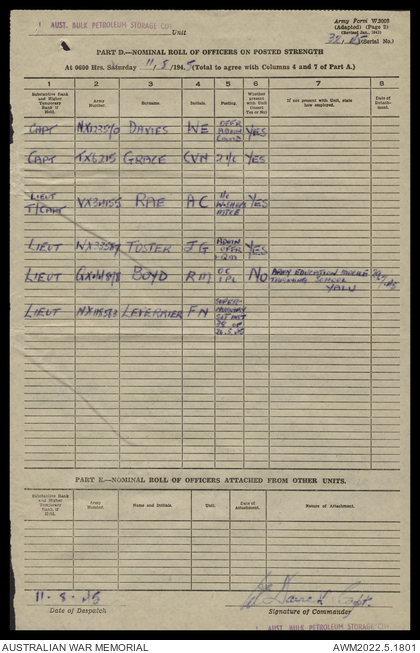 1 AUST. BULK PETROLEUM STORAGE COY
Unit
Army Form W.3008
(Adapted) (Page 2)
(Revised Jan., 1943)
(Serial No.)
PART D.—NOMINAL ROLL OF OFFICERS ON POSTED STRENGTH
At 0600 Hrs. Saturday 11/8/1945 (Total to agree with Columns 4 and 7 of Part A.)
1 2 3 4 5 6 7 8
Substantive Rank and Higher Temporary Rank if Held. Army Number. Surname. Initials. Posting. Whether present with Unit (Insert Yes or No) If not present with Unit, state how employed. Date of Detachment.
CAPT DAVIES WE OFFR ADMIN COMD YES
CAPT TX6215 GRACE CVN 2 I/C YES
LIEUT T/CAPT RAE AC YES
LIEUT FOSTER JG ADMIN OFFR YES
LIEUT BOYD RM OC 1 PL NO ARMY EDUCATION
TRAINING SCHOOL
LIEUT LEVERRIER FN
PART E.—NOMINAL ROLL OF OFFICERS ATTACHED FROM OTHER UNITS.
Substantive Rank and Higher Temporary Rank if Held. Army Number. Name and Initials. Unit. Date of Attachment. Nature of Attachment.
11.8.45
Date of Despatch
Capt.
Signature of Commander
1 AUST. BULK PETROLEUM STORAGE COY
AUSTRALIAN WAR MEMORIAL
AWM2022.5.1801